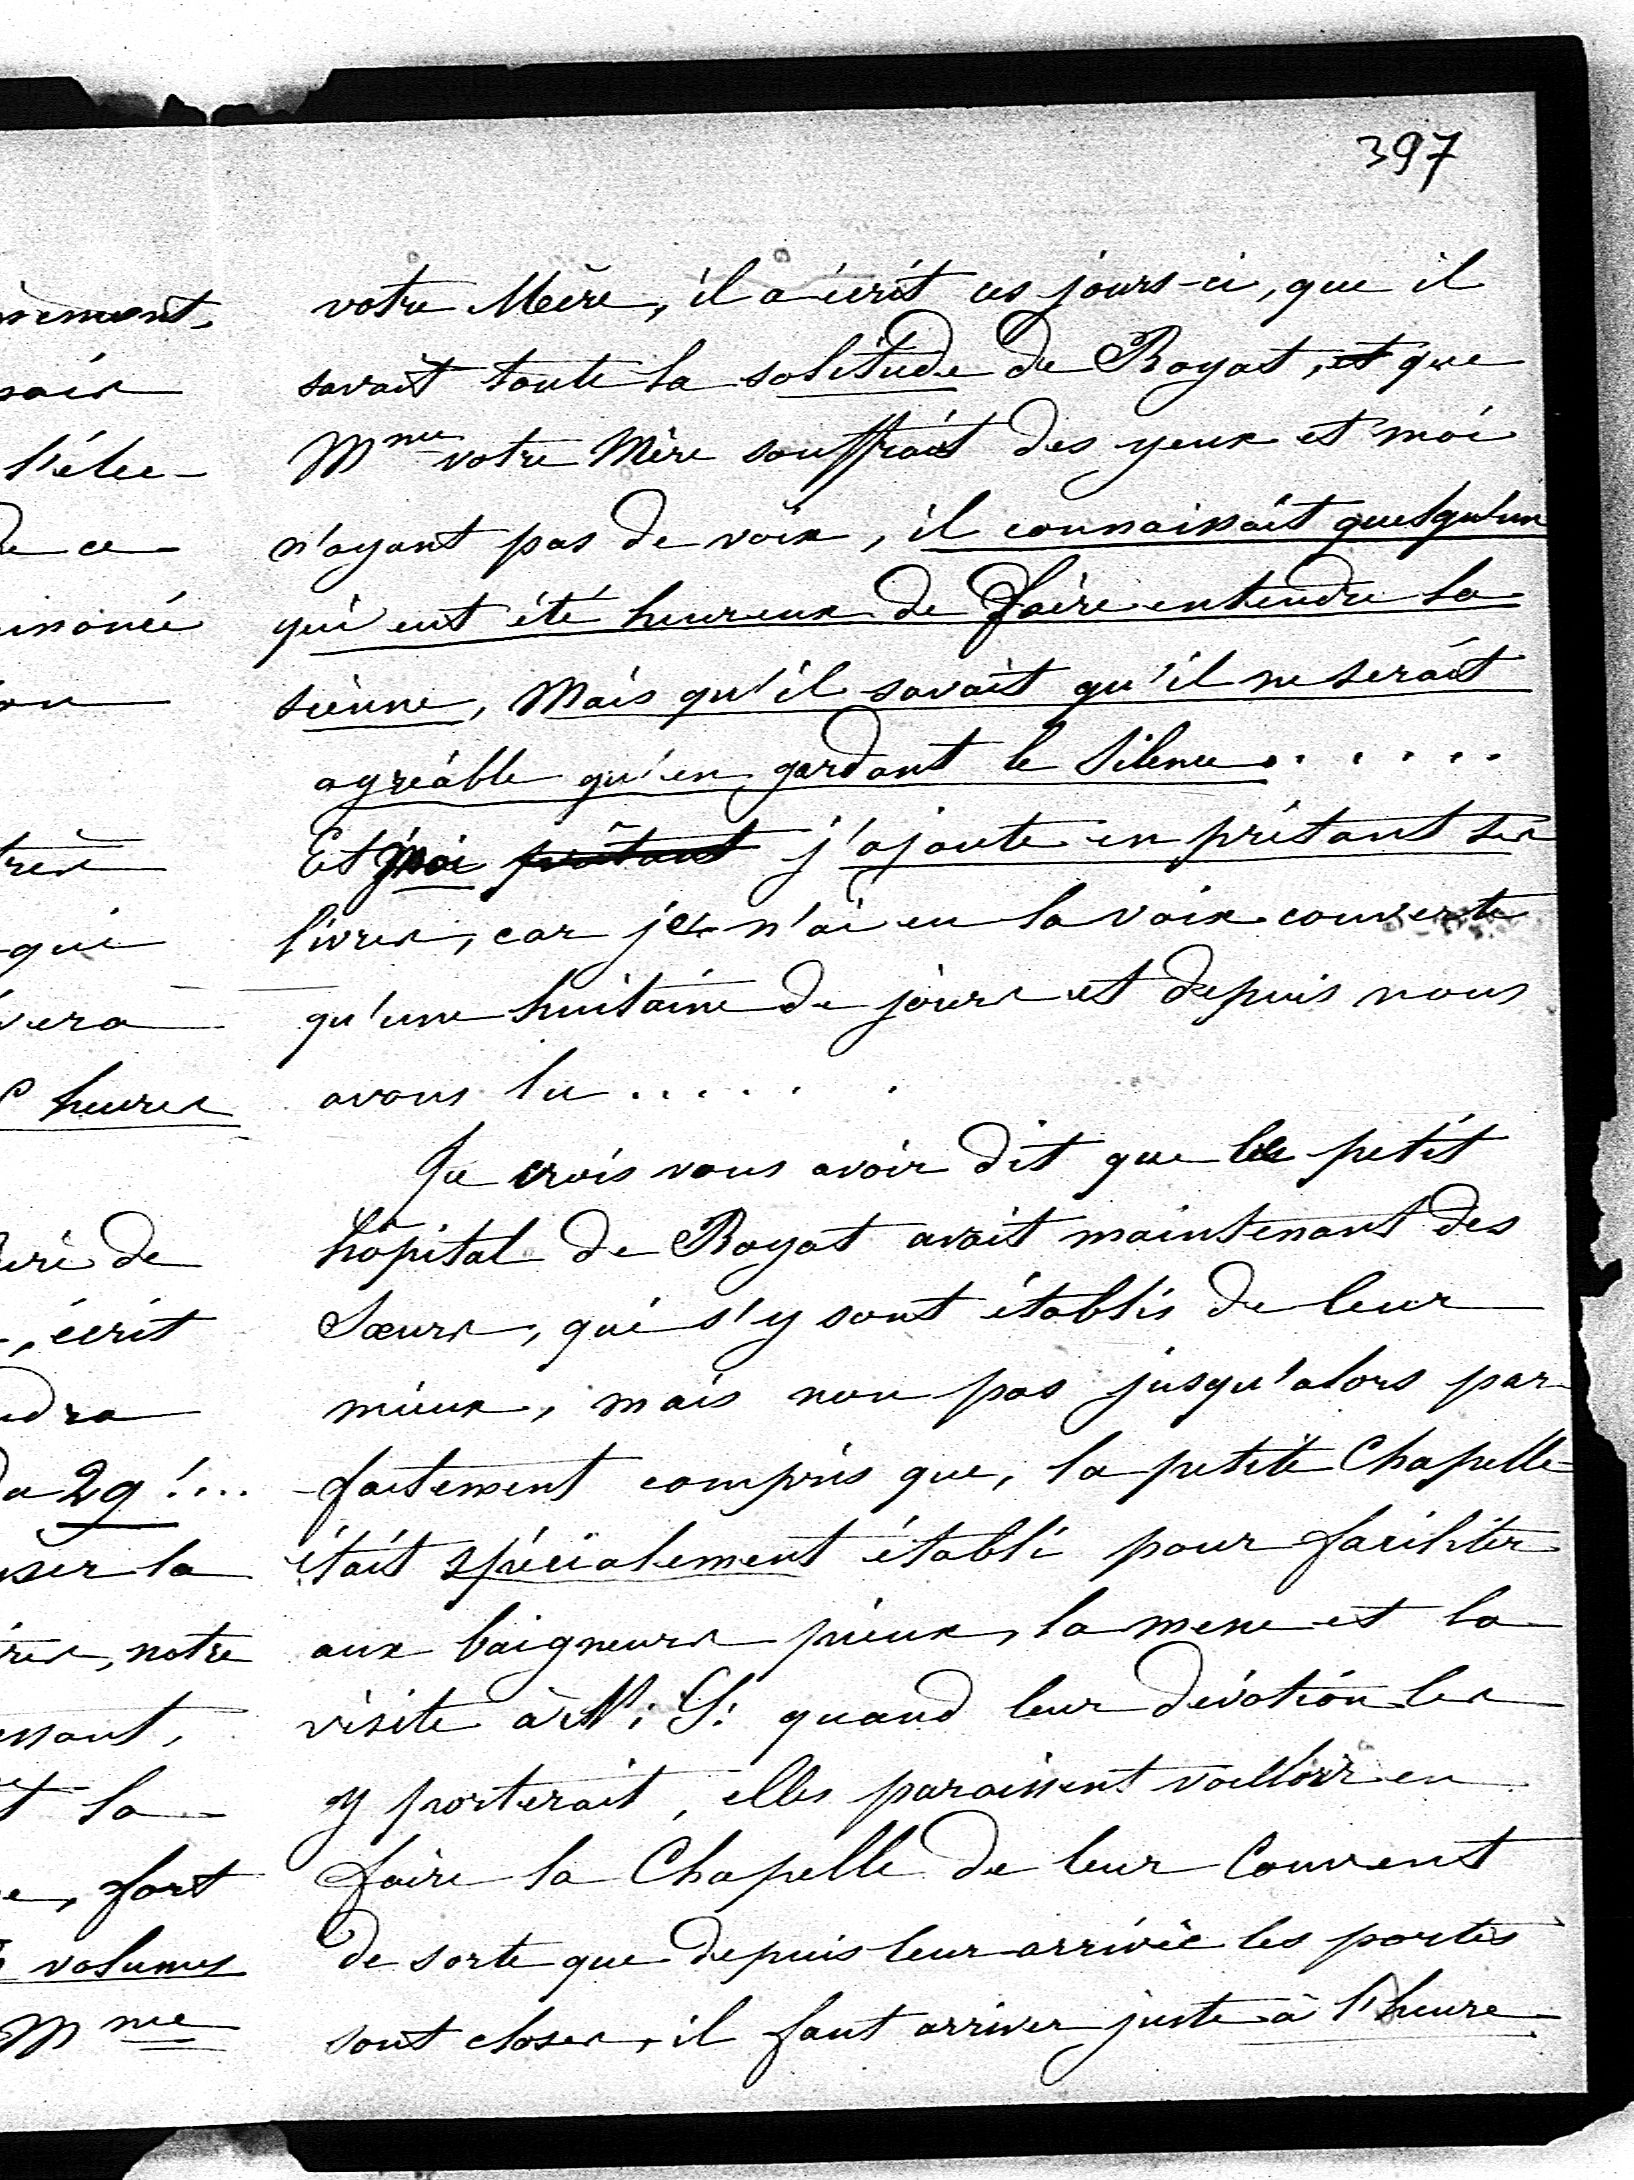 397
votre Mère, il a écrit ces jours-ci, que il
savait toute la solitude de Royat, et que
Mme votre Mère souffrait des yeux et moi
n'ayant pas de voix, il connaissait quelqu'un
qui eut été heureux de faire entendre la
sienne, Mais qu'il savait qu'il ne serait
agréable qu'en gardant le Silence......
Et moi prêtant j'ajoute en prêtant ses
livres, car je n'ai eu la voix couverte
qu'une huitaine de jours et depuis nous
avons lu......
Je crois vous avoir dit que le petit
hôpital de Royat avait maintenant des
Sœurs, qui s'y sont établis de leur
mieux, mais non pas jusqu'alors par-
-faitement compris que, la petite Chapelle
était spécialement établi pour faciliter
aux baigneurs pieux, la messe et la
visite à N: S: quand leur dévotion les
y porterait, elles paraissent vouloir en
faire la Chapelle de leur Couvent
de sorte que depuis leur arrivée les portes
sont closes, il faut arriver juste à l'heure
l'élee-
de ce
qui
heures
de
, écrit
29!...
la
, notre
la
, fort
volumes
Mme